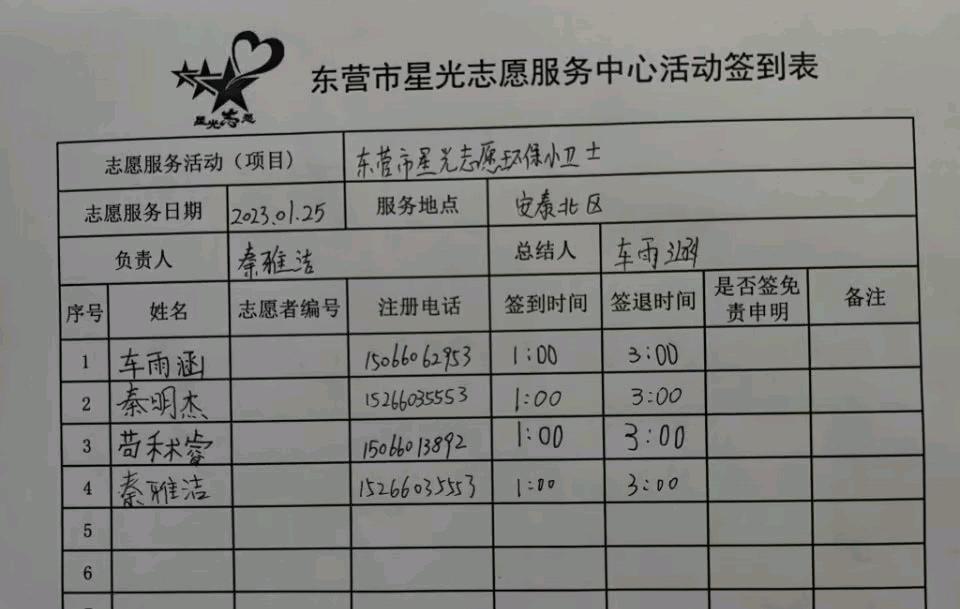 星光志愿
东营市星光志愿服务中心活动签到表
志愿服务活动（项目） 东营市星光志愿环保小卫士
志愿服务日期 2023.01.25 服务地点 安泰北区
负责人 秦雅洁 总结人 车雨涵
序号 姓名 志愿者编号 注册电话 签到时间 签退时间 是否签免责申明 备注
1 车雨涵 15066062953 1:00 3:00
2 秦明杰 15266035553 1:00 3:00
3 苗禾术睿 15066013892 1:00 3:00
4 秦雅洁 15266035553 1:00 3:00
5
6